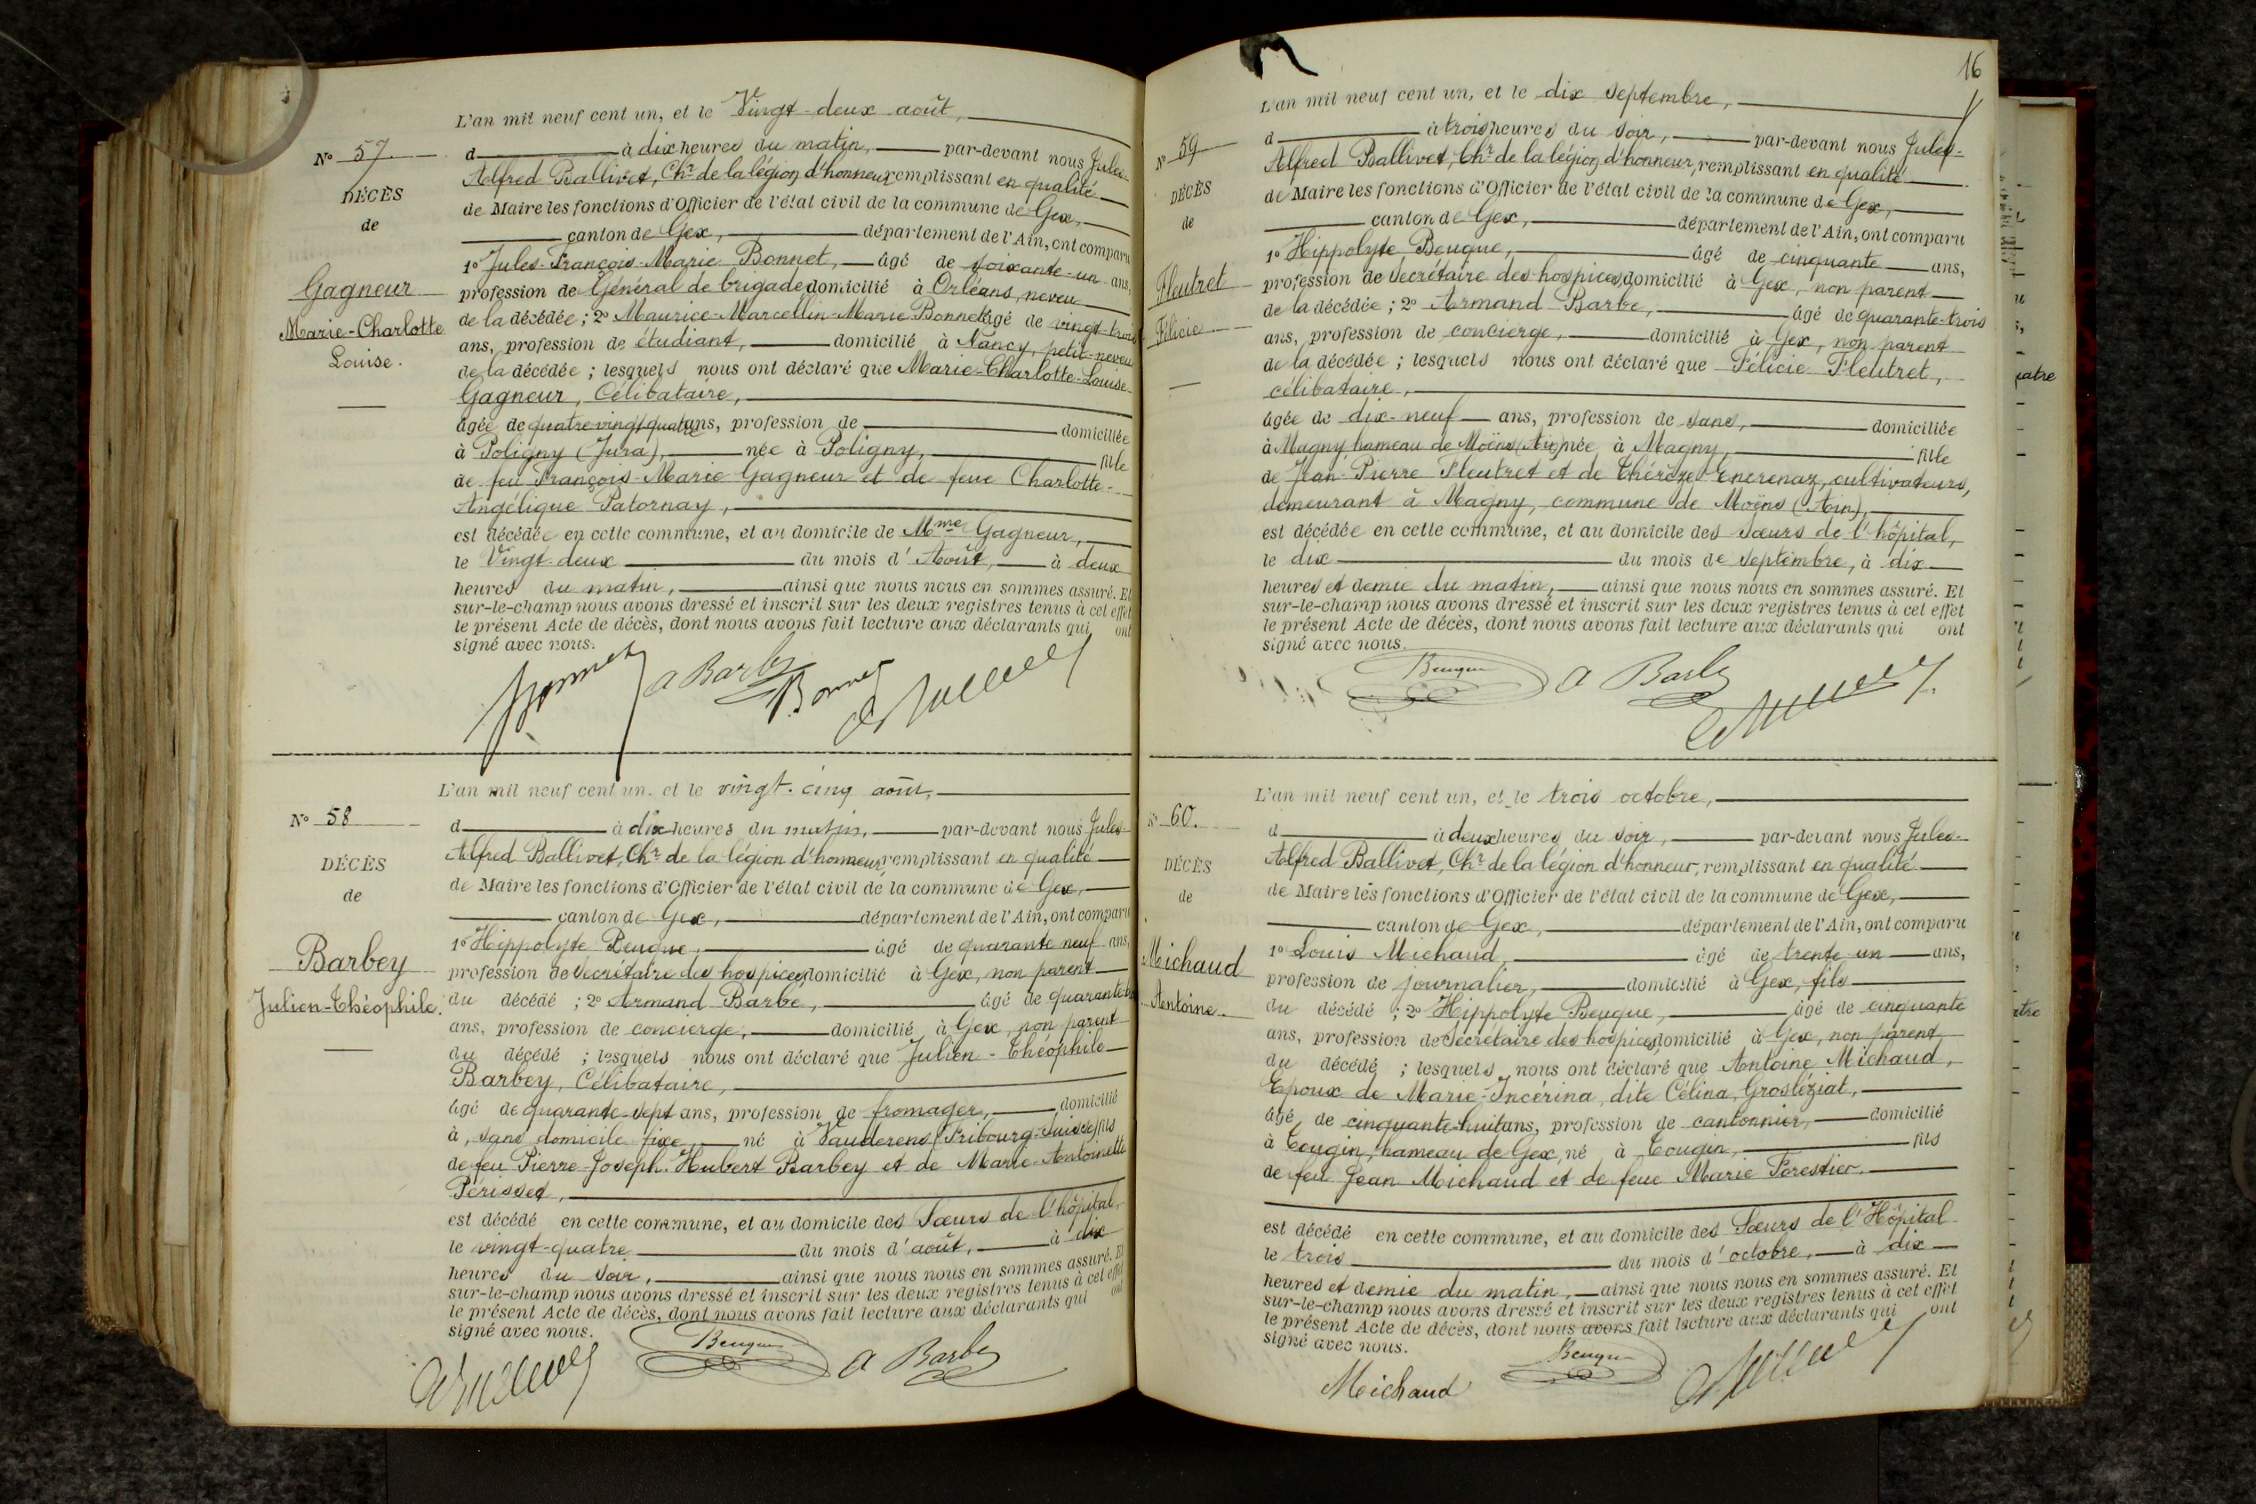 L'an mil neuf cent un, et le Vingt-deux août,
N° 57. d à dix heures du matin, par-devant nous Jules-
Alfred Ballivet, Chr. de la légion d'honneur, remplissant en qualité
DÉCÈS
de Maire les fonctions d'Officier de l'état civil de la commune de Gex,
de
canton de Gex, département de l'Ain, ont comparu
1° Jules-François-Marie Bonnet, âgé de soixante-un ans,
Gagneur
profession de Général de brigade, domicilié à Orléans, neveu
Marie-Charlotte
de la décédée ; 2° Maurice-Marcellin-Marie Bonnet âgé de vingt-trois
Louise.
ans, profession de étudiant, domicilié à Nancy, petit-neveu
de la décédée ; lesquels nous ont déclaré que Marie-Charlotte-Louise
Gagneur, Célibataire,
âgée de quatre vingt quatre ans, profession de domiciliée
à Poligny (Jura), née à Poligny, fille
de feu François-Marie Gagneur et de feue Charlotte-
Angélique Patornay,
est décédée en cette commune, et au domicile de Mme Gagneur,
le Vingt-deux du mois d'Août, à deux
heures du matin, ainsi que nous nous en sommes assuré. Et
sur-le-champ nous avons dressé et inscrit sur les deux registres tenus à cet effet
le présent Acte de décès, dont nous avons fait lecture aux déclarants qui ont
signé avec nous.
Bonnet A Barbe Bonnet
L'an mil neuf cent un, et le vingt-cinq août,
N° 58
d à dix heures du matin, par-devant nous Jules-
Alfred Ballivet, Chr. de la légion d'honneur, remplissant en qualité
DÉCÈS
de Maire les fonctions d'Officier de l'état civil de la commune de Gex,
de
canton de Gex, département de l'Ain, ont comparu
1° Hippolyte Beuque, âgé de quarante neuf ans,
Barbey
profession de Secrétaire des hospices, domicilié à Gex, non parent
Julien-Théophile.
du décédé ; 2° Armand Barbe, âgé de quarante-
ans, profession de concierge, domicilié à Gex, non parent
du décédé ; lesquels nous ont déclaré que Julien-Théophile
Barbey, Célibataire,
âgé de quarante-sept ans, profession de fromager, domicilié
à, sans domicile fixe, né à Vauderens (Fribourg-Suisse) fils
de feu Pierre-Joseph-Hubert Barbey et de Marie-Antoinette
Périsset,
est décédé en cette commune, et au domicile des Sœurs de l'hôpital,
le vingt-quatre du mois d'août, à dix
heures du soir, ainsi que nous nous en sommes assuré. Et
sur-le-champ nous avons dressé et inscrit sur les deux registres tenus à cet effet
le présent Acte de décès, dont nous avons fait lecture aux déclarants qui ont
signé avec nous.
Beuque A Barbe
16
L'an mil neuf cent un, et le dix septembre,
N° 59
d à trois heures du soir, par-devant nous Jules-
Alfred Ballivet, Chr. de la légion d'honneur, remplissant en qualité
DÉCÈS
de Maire les fonctions d'Officier de l'état civil de la commune de Gex,
de
canton de Gex, département de l'Ain, ont comparu
1° Hippolyte Beuque, âgé de cinquante ans,
Fleutret
profession de Secrétaire des hospices, domicilié à Gex, non parent
de la décédée ; 2° Armand Barbe, âgé de quarante-trois
Félicie
ans, profession de concierge, domicilié à Gex, non parent
de la décédée ; lesquels nous ont déclaré que Félicie Fleutret,
célibataire,
âgée de dix-neuf ans, profession de sans, domiciliée
à Magny hameau de Moëns (Ain), née à Magny, fille
de Jean-Pierre Fleutret et de Thérèze Encrenaz, cultivateurs,
demeurant à Magny, commune de Moëns (Ain),
est décédée en cette commune, et au domicile des sœurs de l'hôpital,
le dix du mois de septembre, à dix
heures et demie du matin, ainsi que nous nous en sommes assuré. Et
sur-le-champ nous avons dressé et inscrit sur les deux registres tenus à cet effet
le présent Acte de décès, dont nous avons fait lecture aux déclarants qui ont
signé avec nous.
Beuque A Barbe
L'an mil neuf cent un, et le trois octobre,
N° 60.
d à deux heures du soir, par-devant nous Jules-
Alfred Ballivet, Chr. de la légion d'honneur, remplissant en qualité
DÉCÈS
de Maire les fonctions d'Officier de l'état civil de la commune de Gex,
de
canton de Gex, département de l'Ain, ont comparu
1° Louis Michaud, âgé de trente-un ans,
Michaud
profession de journalier, domicilié à Gex, fils
Antoine.
du décédé ; 2° Hippolyte Beuque, âgé de cinquante
ans, profession de Secrétaire des hospices, domicilié à Gex, non parent
du décédé ; lesquels nous ont déclaré que Antoine Michaud,
Epoux de Marie-Incérina, dite Célina, Grosléziat,
âgé de cinquante-huit ans, profession de cantonnier, domicilié
à Tougin, hameau de Gex, né à Tougin, fils
de feu Jean Michaud et de feue Marie Forestier.
est décédé en cette commune, et au domicile des Sœurs de l'Hôpital
le trois du mois d'octobre, à dix
heures et demie du matin, ainsi que nous nous en sommes assuré. Et
sur-le-champ nous avons dressé et inscrit sur les deux registres tenus à cet effet
le présent Acte de décès, dont nous avons fait lecture aux déclarants qui ont
signé avec nous.
Michaud Beuque